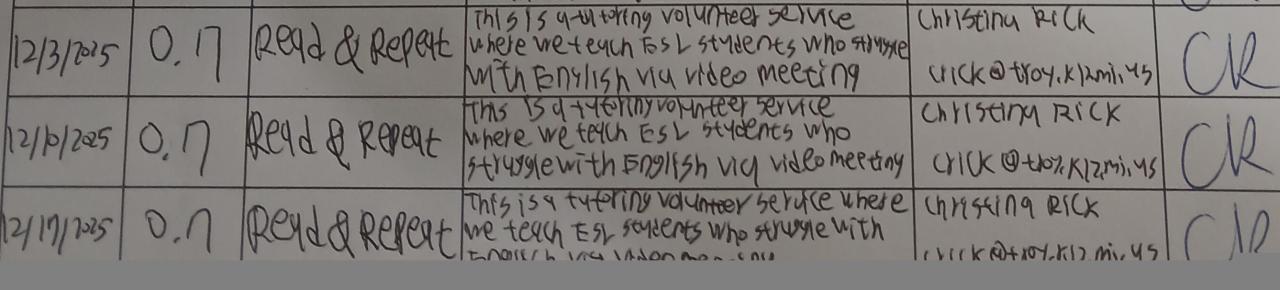 12/3/2025 0.7 Read & Repeat This is a tutoring volunteer service where we teach ESL students who struggle with English via video meeting Christina Rick crick@troy.k12.mi.us CR
12/10/2025 0.7 Read & Repeat This is a tutoring volunteer service where we teach ESL students who struggle with English via video meeting Christina Rick crick@troy.k12.mi.us CR
12/17/2025 0.7 Read & Repeat This is a tutoring volunteer service where we teach ESL students who struggle with English via video meeting Christina Rick crick@troy.k12.mi.us CR